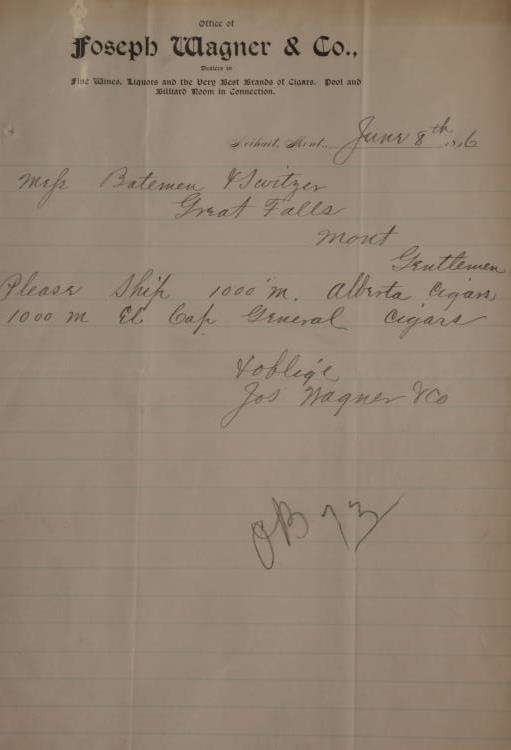 Office of
Joseph Wagner & Co.,
Dealers in
Fine Wines, Liquors and the Very Best Brands of Cigars. Pool and
Billiard Room in Connection.
Neihart, Mont., June 8th 1896
Mess Batemen & Switzer
Great Falls
Mont
Gentlemen
Please Ship 1000 m. Alberta Cigars
1000 m El Cap General Cigars
& oblige
Jos Wagner & Co